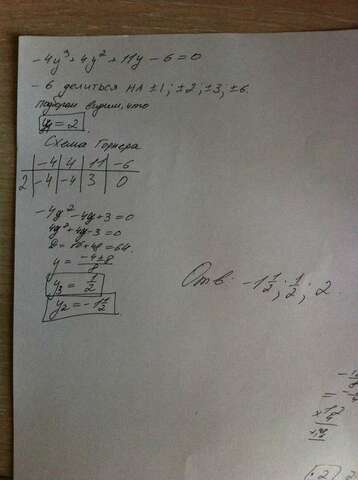 -4y³+4y²+11y-6=0
-6 делиться на ±1; ±2; ±3; ±6.
видим, что
y₁=2.
Схема Горнера
-4 | 4 | 11 | -6
2 | -4 | -4 | 3 | 0
-4y²-4y+3=0
4y²+4y-3=0
D=16+48=64.
y=\frac{-4±8}{8}
y₃=\frac{1}{2}
y₂=-1\frac{1}{2}
Отв: -1\frac{1}{2}; \frac{1}{2}; 2.